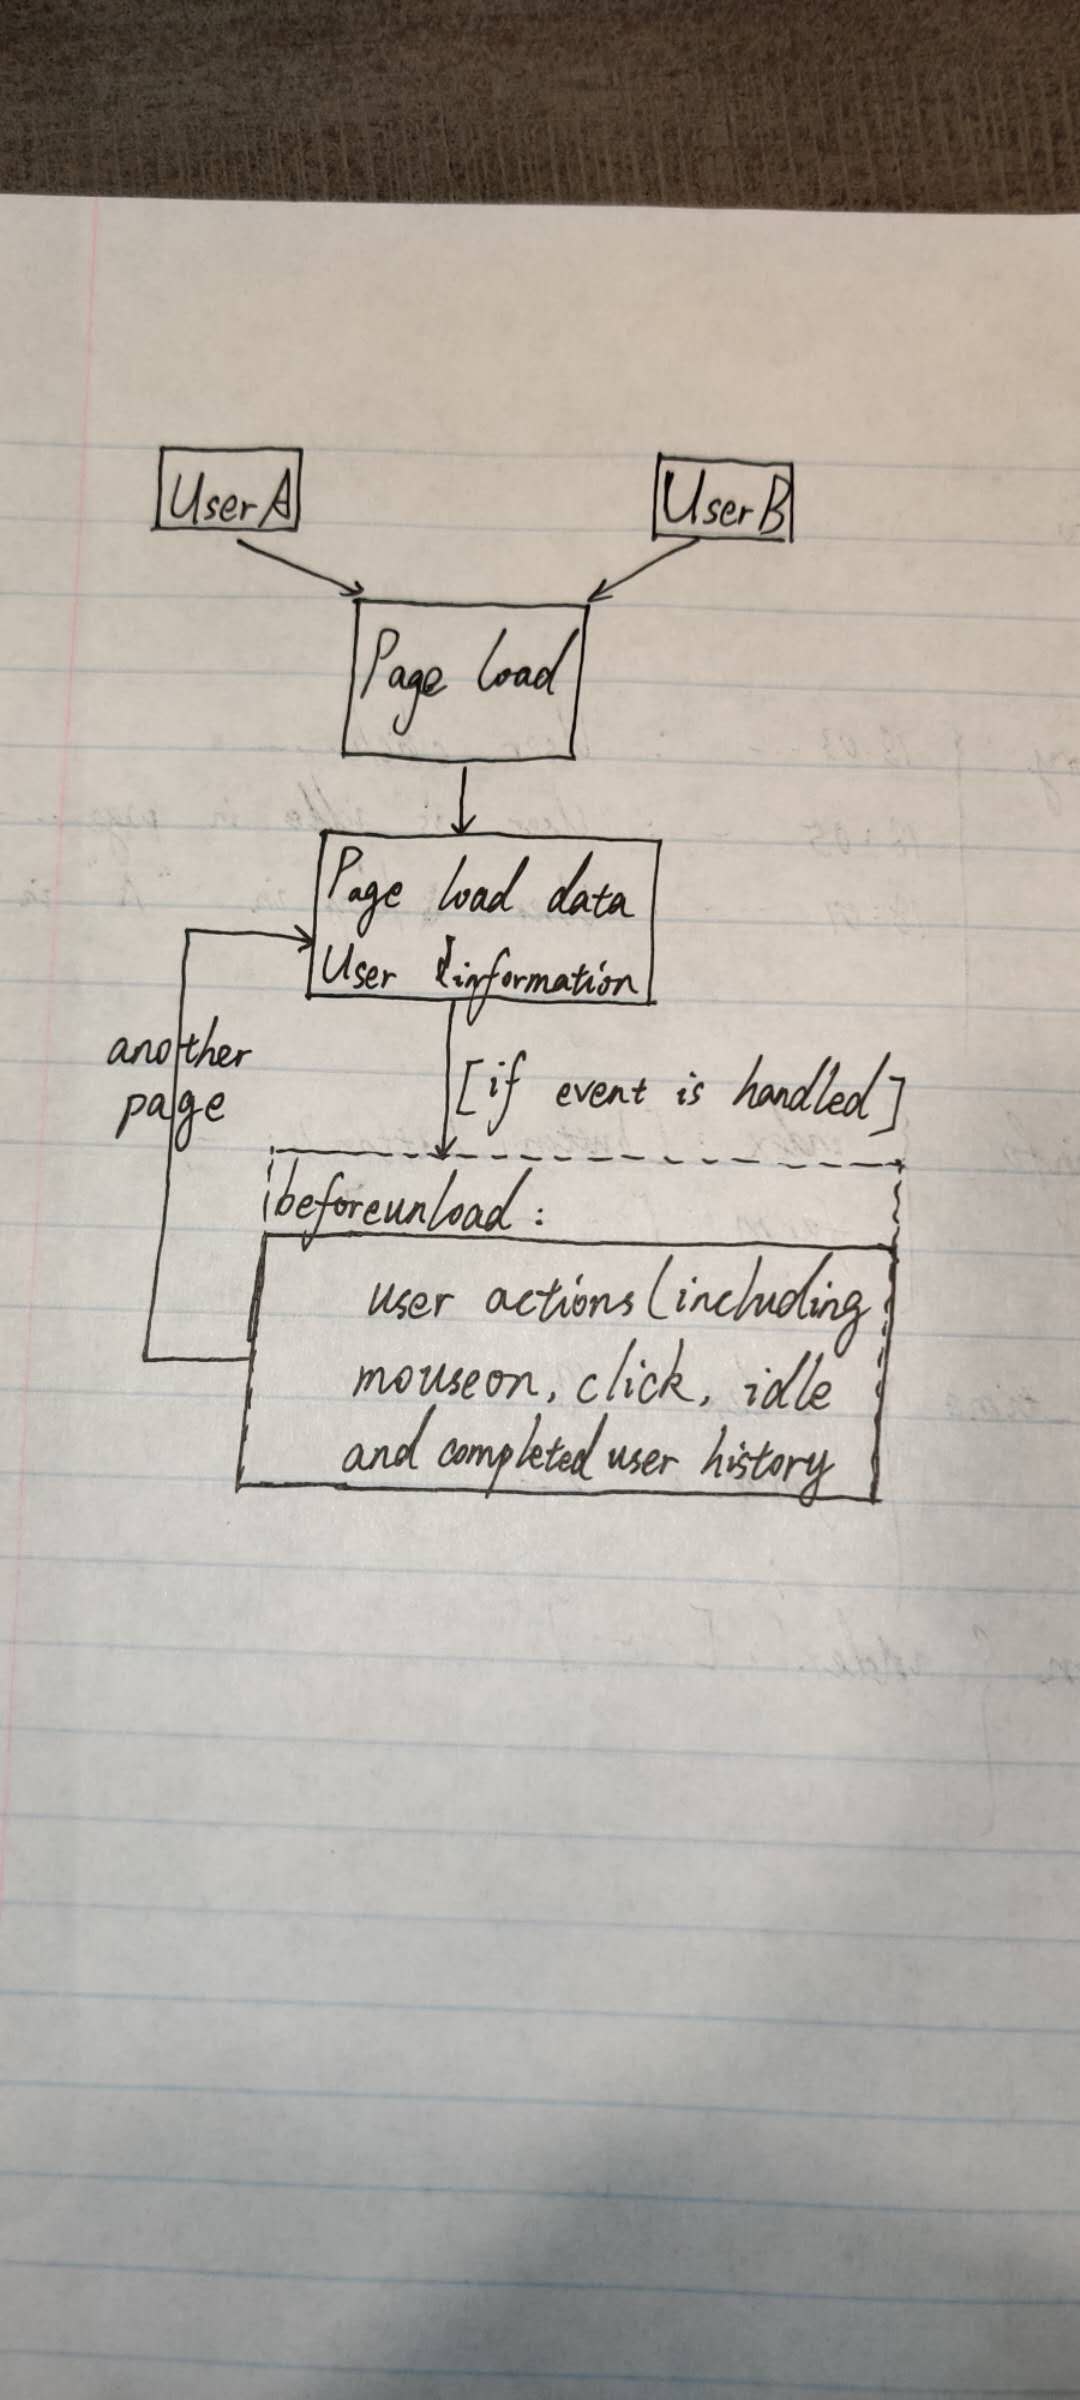 User A
User B
Page load
Page load data
User information
another
page
[if event is handled]
beforeunload:
user actions (including
mouseon, click, idle
and completed user history